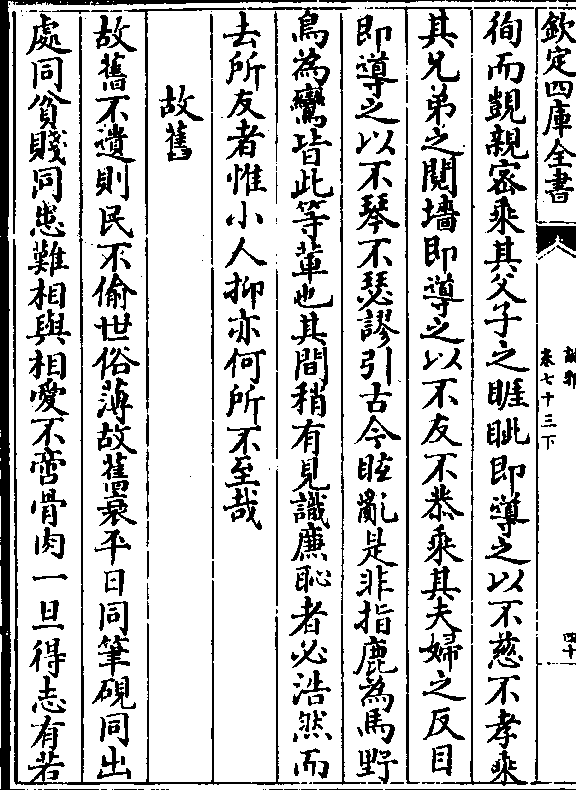 欽定四庫全書
說郛
卷七十三下
四十
徇而覬親密乘其父子之睚眦即導之以不慈不孝乘
其兄弟之鬩墻即導之以不友不恭乘其夫婦之反目
即導之以不琴不瑟謬引古今眩亂是非指鹿為馬野
鳥為鸞皆此等輩也其間稍有見識廉恥者必浩然而
去所友者惟小人抑亦何所不至哉
故舊
故舊不遺則民不偷世俗薄故舊衰平日同筆硯同出
處同貧賤同患難相與相愛不啻骨肉一旦得志有若